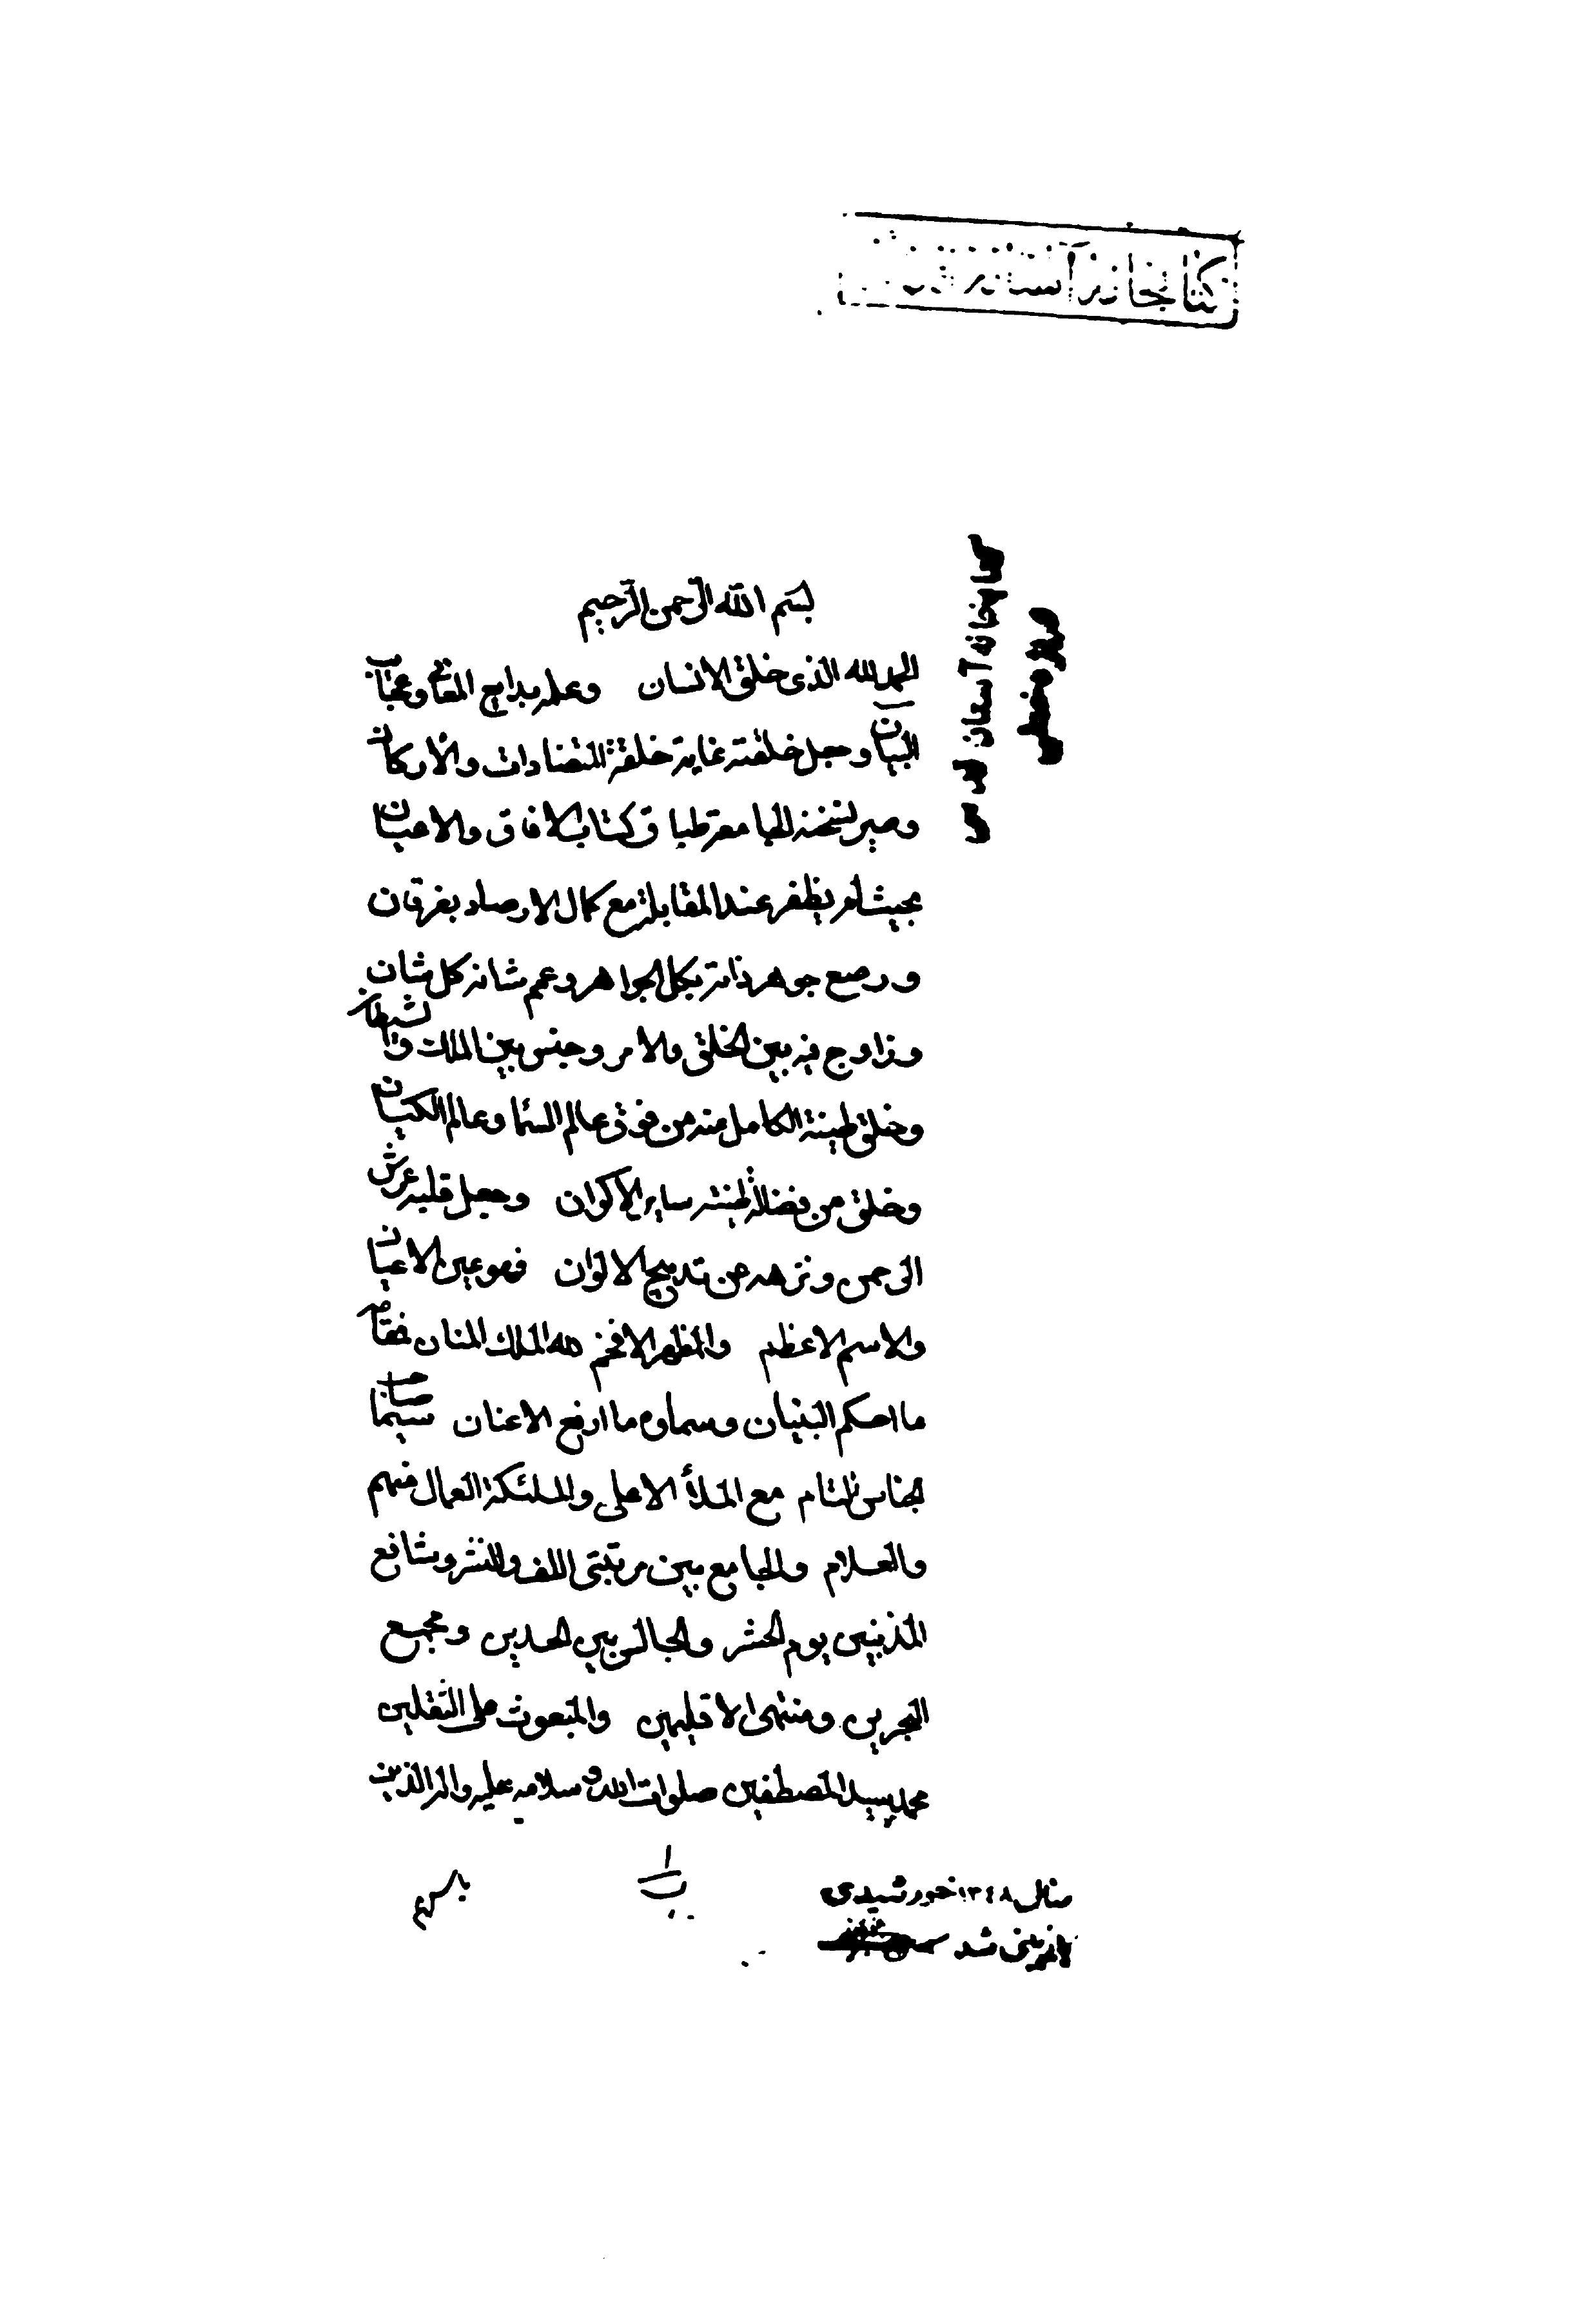 کتابخانه آستان قدس
کتابخانه آستان قدس
بسم الله الرحمن الرحیم
الحمد لله الذی خلق الانسان وعلمه بدایع المعانی وعجایب
البیان وجعل خلقته غایة خلقة المتضادات والارکان
وصیر نسخته الجامعة طباق کتاب الافاق والاعیان
بحیث لم یظفر عند المقابلة مع کمال الارصاد بفرقان
ورصع جوهر ذاته بکل الجواهر وعمم شانه کل شان
وزاوج فیه بین الخلق والامر وجنس بین الملک والشیطان
وخلق طینة الکامل منه من فوق عالم السما وعالم الکیان
وخلق من فضالة طینته سایر الاکوان وجعل قلبه عرش
الرحمن ونزهه عن تدبیج الالوان فهو عین الاعیان
والاسم الاعظم والمظهر الافخم لله الملک المنان
ما احکم البنیان وسماوه ما ارفع الاعنان سیما صاحب
الجناس التام مع الملأ الاعلی والملئکة العمال منهم
والعلام والجامع بین مرتبتی اللف والنشر وشافع
المذنبین یوم الحشر والجالس بین الحدین ومجمع
البحرین ومنتهی الاقلیمین والمبعوث علی الثقلین
محمد سید المصطفین صلوات الله وسلامه علیه واله الذین
سال ۱۳۴۸ خورشیدی
بازبینی شد